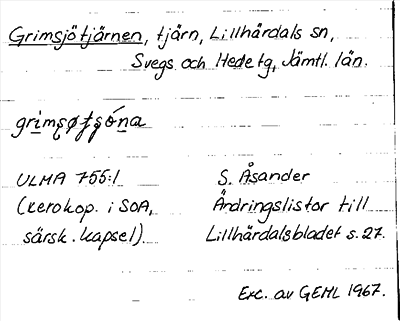 Grimsjötjärnen, tjärn, Lillhärdals sn,
Svegs och Hede tg, Jämtl. län.
grimsøtʂóna
ULMA 755:1
(xerokop. i SOA,
särsk. kapsel).
S. Åsander
Ändringslistor till
Lillhärdalsbladet s. 27.
Exc. av GEHL 1967.